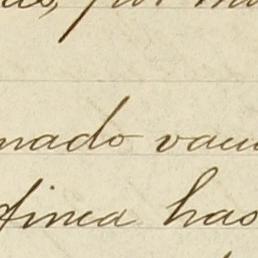 por
nado vacu
finca has